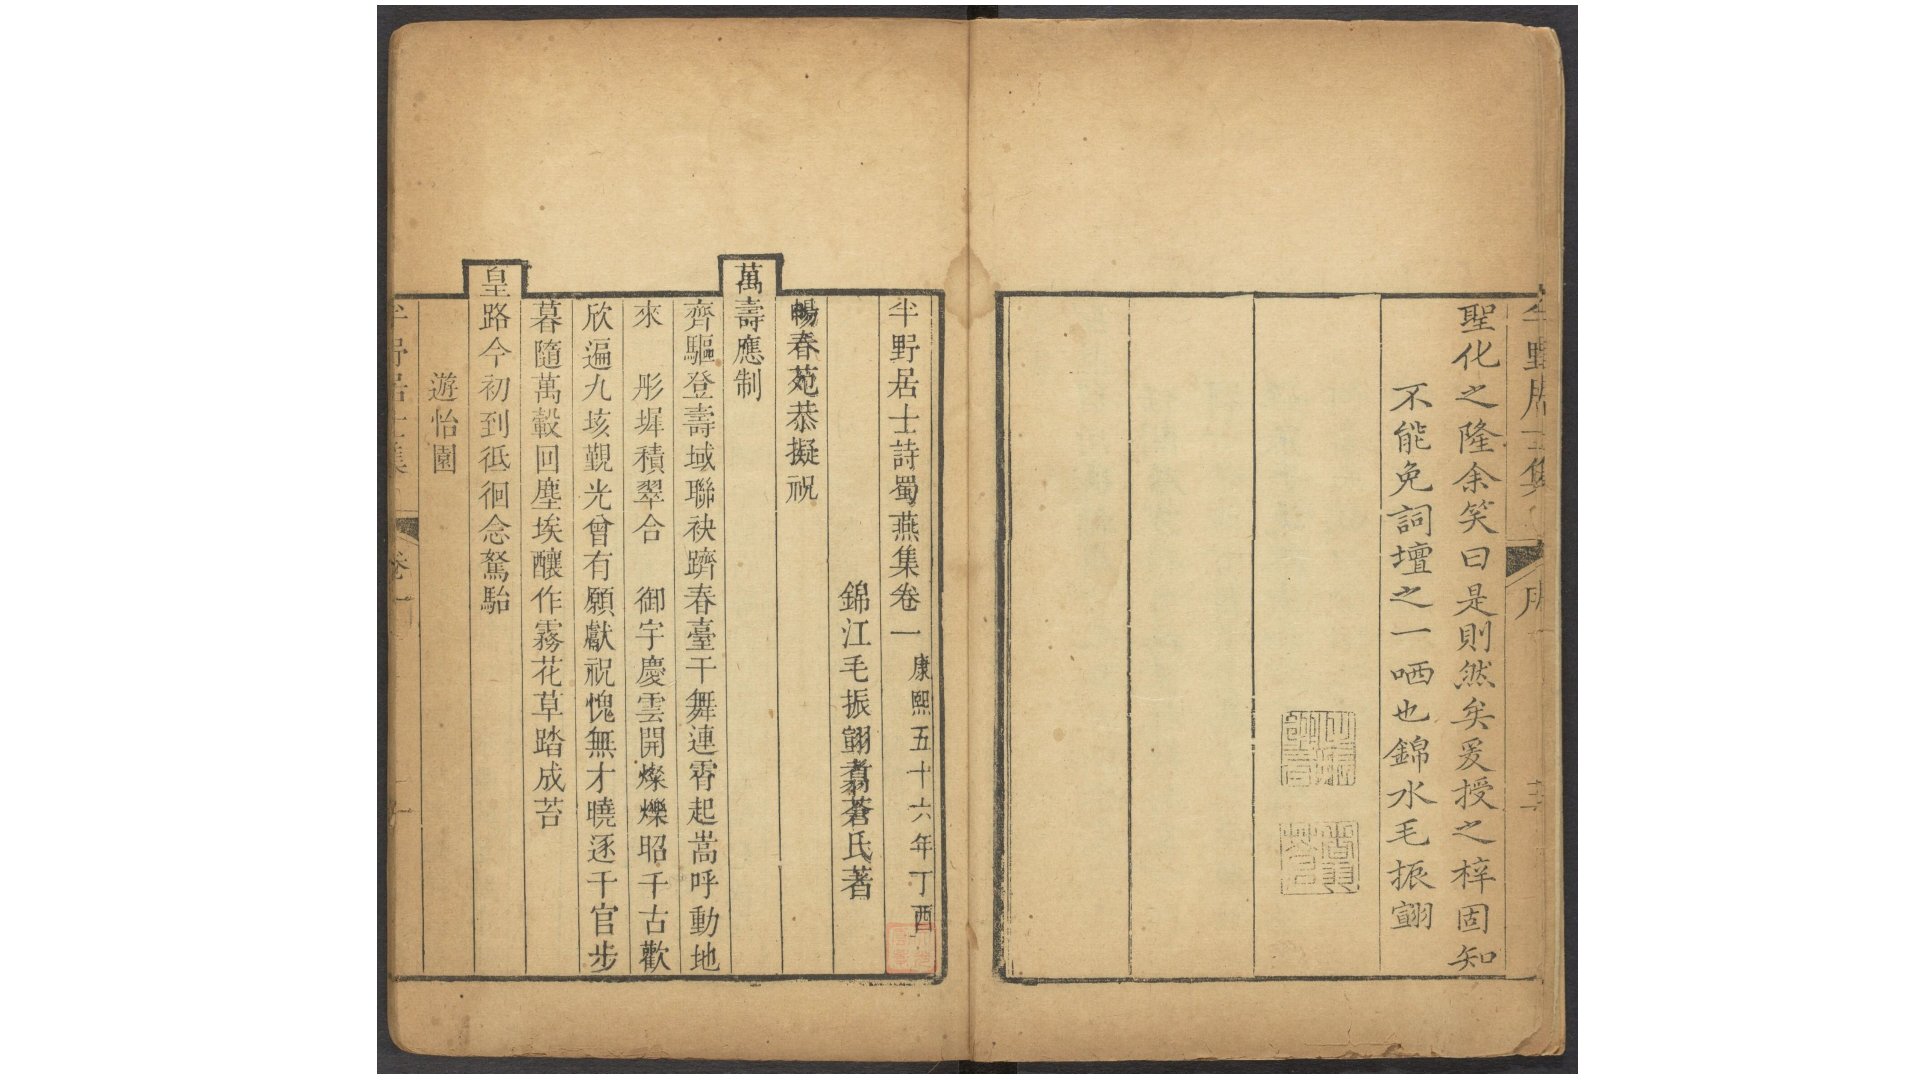 聖化之隆余笑曰是則然矣爰授之梓固知
不能免詞壇之一哂也錦水毛振翧
半野居士詩蜀燕集卷一
康熙五十六年丁酉
錦江毛振翧翥蒼氏著
暢春苑恭擬祝
萬壽應制
齊驅登壽域聯袂躋春臺干舞連霄起嵩呼動地
來 彤墀積翠合 御宇慶雲開燦爍昭千古歡
欣遍九垓觀光曾有願獻祝愧無才曉逐千官步
暮隨萬轂回塵埃釀作霧花草踏成苔
皇路今初到徘徊念駑駘
遊怡園